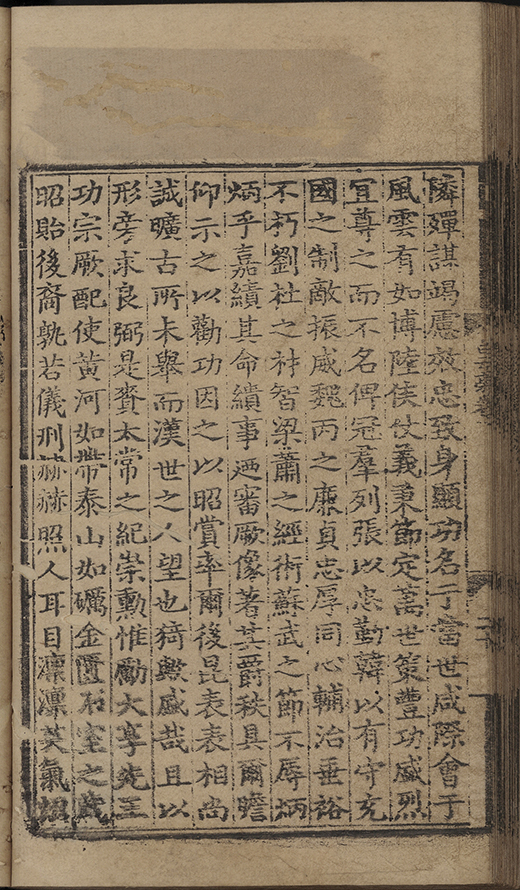 隣殫謀竭慮效忠致身顯功名于當世咸際會于
風雲有如博陸侯仗義秉節定萬世策豐功盛烈
冝尊之而不名俾冠羣列張以忠勤韓以有守充
國之制敵振威魏丙之廉貞忠厚同心輔治垂裕
不朽劉杜之材智梁蕭之經術蘇武之節不辱炳
炳乎嘉績其命繢事迺審厥像著其爵秩具爾瞻
仰示之以勸功因之以昭賞率爾後昆表表相尚
誠曠古所未舉而漢世之人望也猗歟盛哉且以
形旁求良弼是賚太常之紀崇勳惟勵大享先王
功宗厥配使黄河如帶泰山如礪金匱石室之藏
昭貽後裔孰若儀刑赫赫照人耳目凛凛英氣